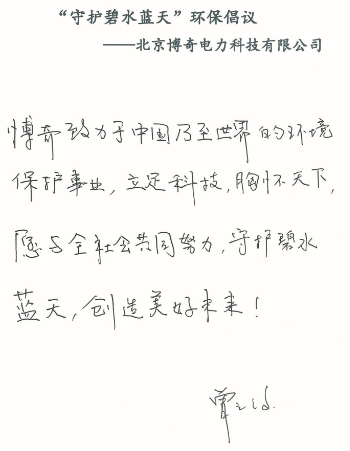 “守护碧水蓝天”环保倡议
——北京博奇电力科技有限公司
博奇致力于中国乃至世界的环境
保护事业，立足科技，胸怀天下，
愿与全社会共同努力，守护碧水
蓝天，创造美好未来！